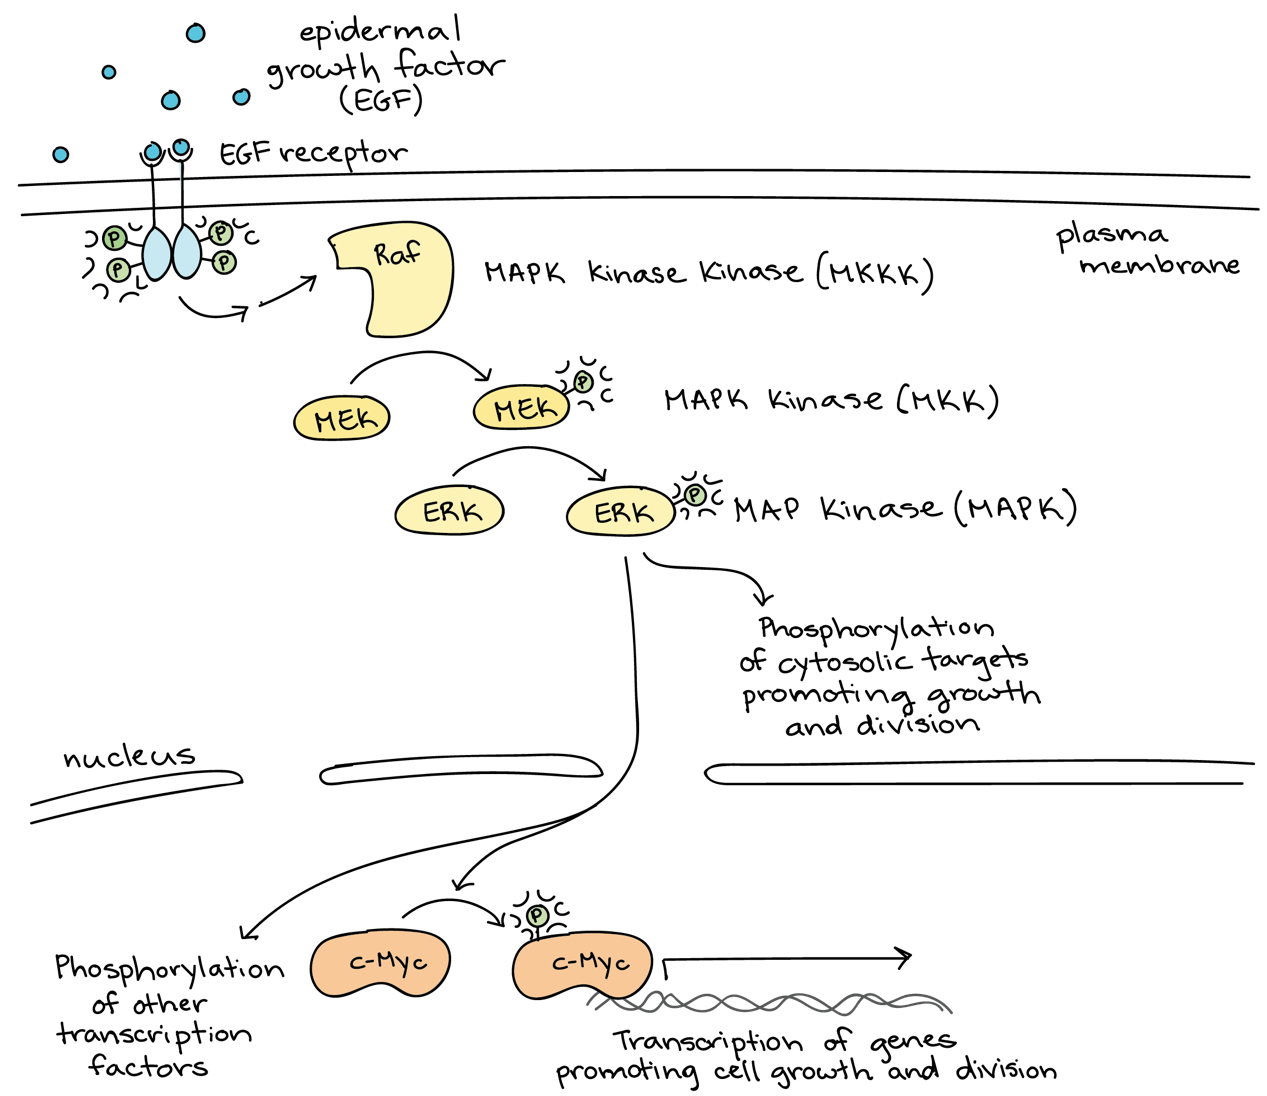 epidermal
growth factor
(EGF)
EGF receptor
P
P
P
P
plasma
membrane
Raf
MAPK kinase kinase (MKKK)
MEK
MEK
P
MAPK kinase (MKK)
ERK
ERK
P
MAP kinase (MAPK)
Phosphorylation
of cytosolic targets
promoting growth
and division
nucleus
P
c-Myc
c-Myc
Phosphorylation
of other
transcription
factors
Transcription of genes
promoting cell growth and division